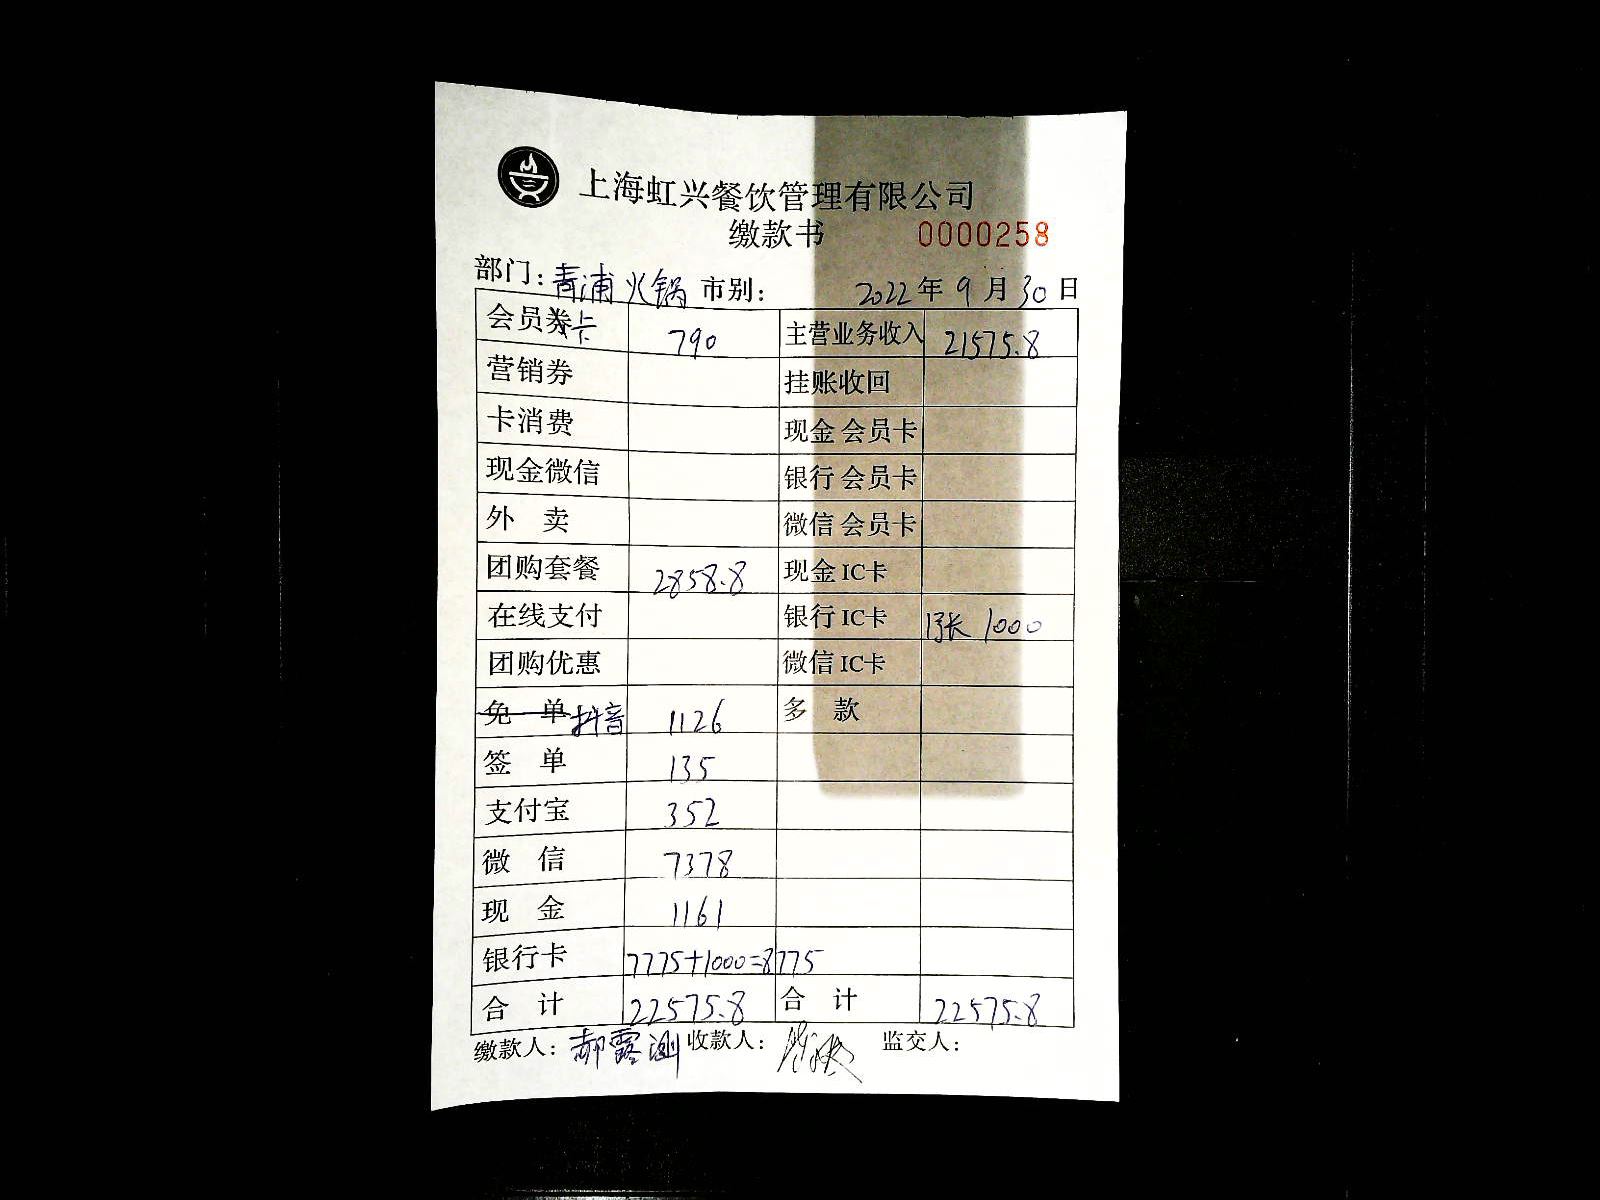 上海虹兴餐饮管理有限公司
缴款书 0000258
部门：青浦火锅 市别： 2022年9月30日
会员券卡 790 主营业务收入 21575.8
营销券 挂账收回
卡消费 现金会员卡
现金微信 银行会员卡
外 卖 微信会员卡
团购套餐 2858.8 现金IC卡
在线支付 银行IC卡 1张 1000
团购优惠 微信IC卡
免 单 抖音 1126 多 款
签 单 135
支付宝 352
微 信 7378
现 金 1161
银行卡 7775+1000=8775
合 计 22575.8 合 计 22575.8
缴款人：郝露 收款人： 监交人：